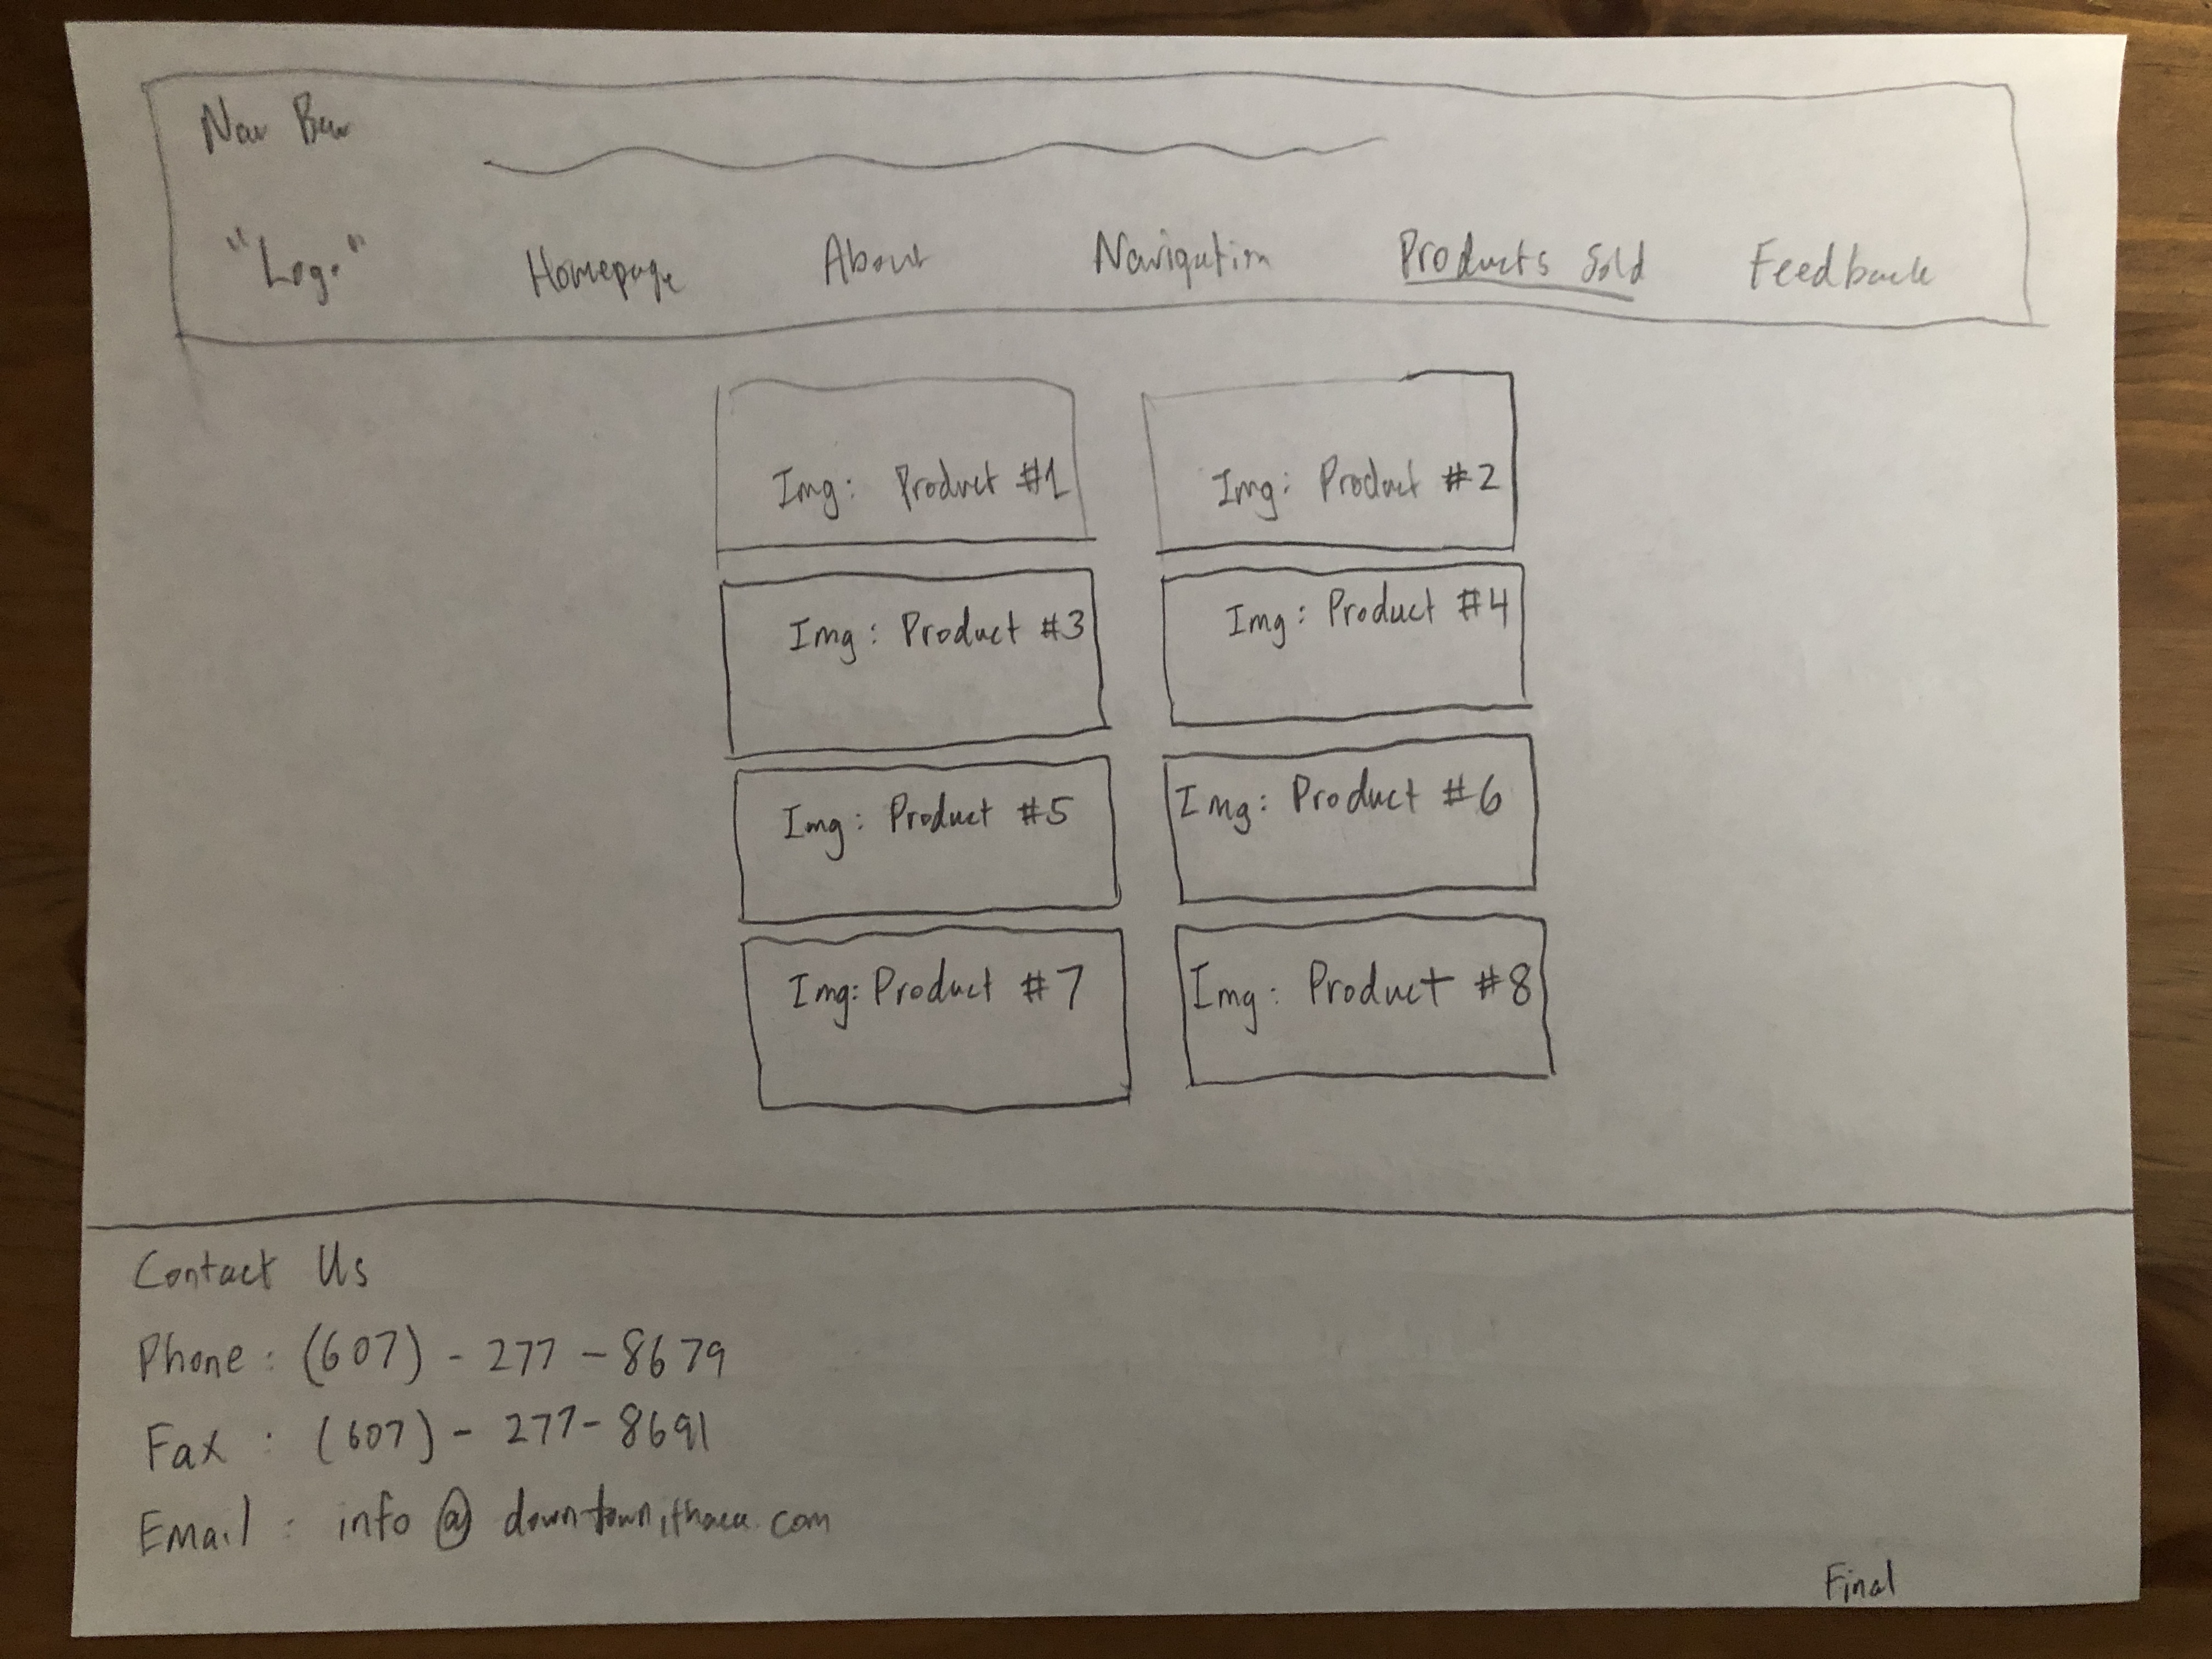 Nav Bar
"Logo" Homepage About Navigation Products Sold Feedback
Img: Product #1 Img: Product #2
Img: Product #3 Img: Product #4
Img: Product #5 Img: Product #6
Img: Product #7 Img: Product #8
Contact Us
Phone: (607) - 277 - 8679
Fax : (607) - 277 - 8691
Email : info @ downtownithaca.com
Final